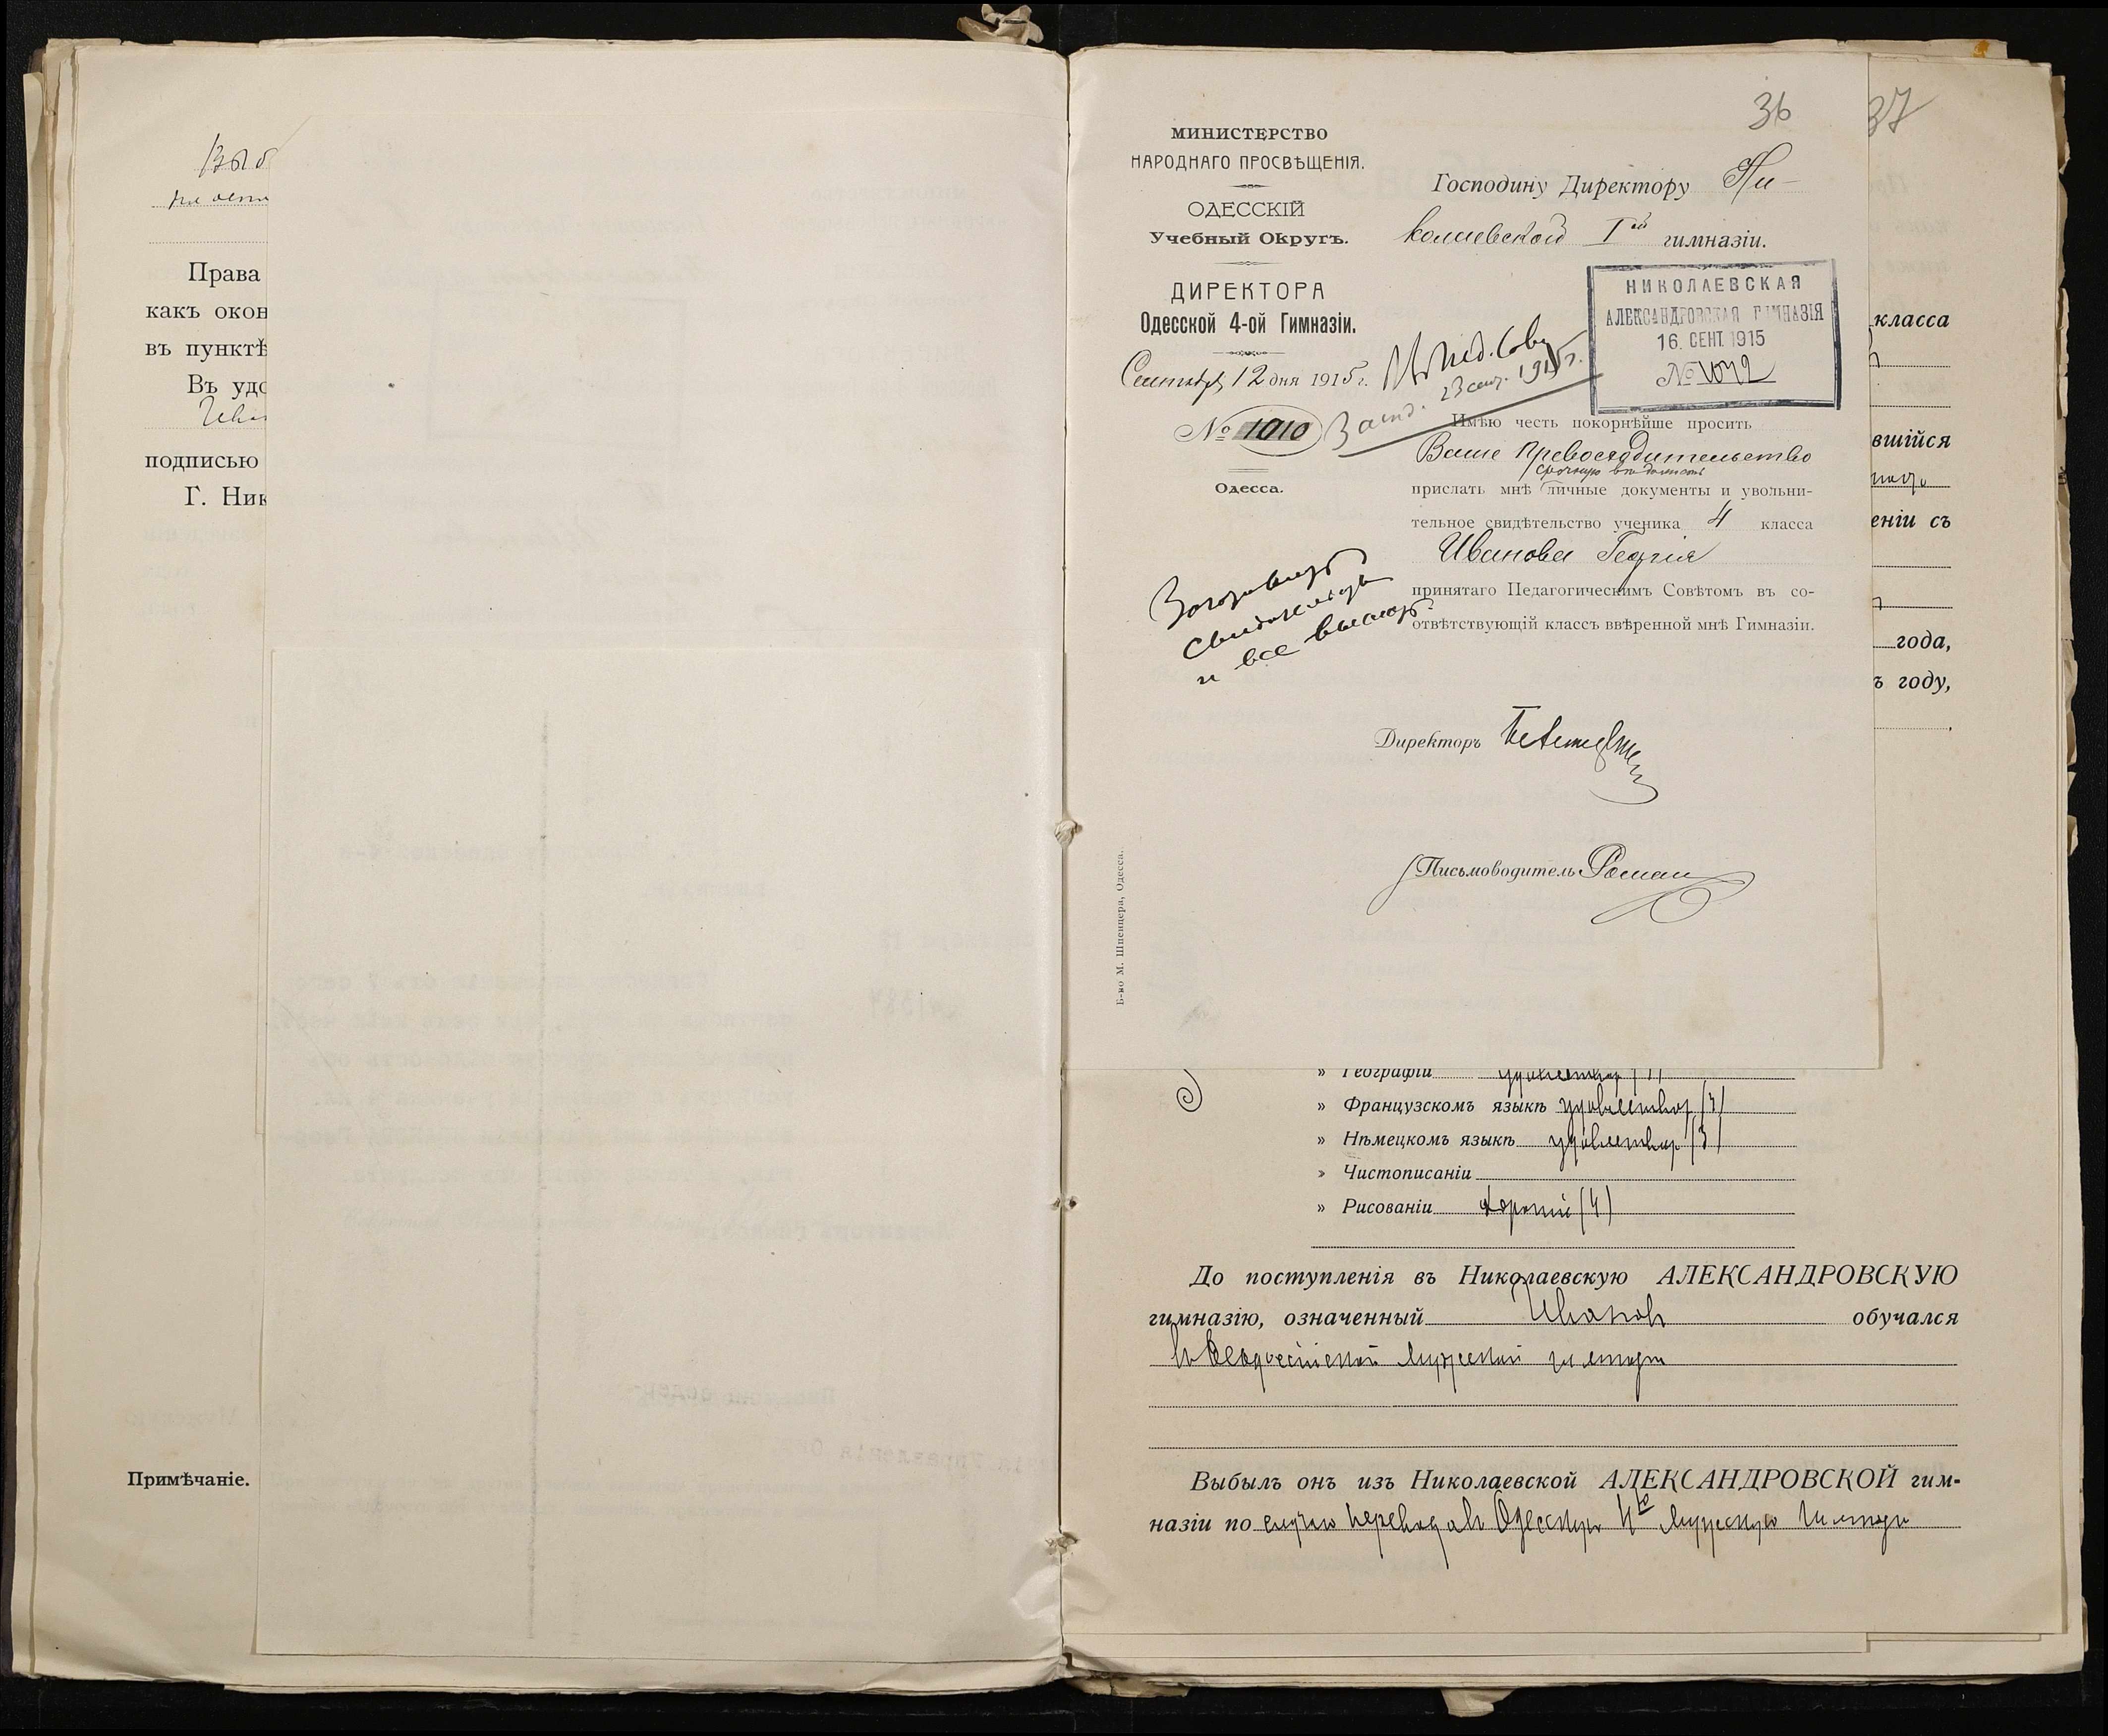 Выб
Права
какъ окон
въ пунктѣ
Въ удо
Ива
подписью
Г. Ник
Примѣчаніе.
36
37
МИНИСТЕРСТВО
НАРОДНАГО ПРОСВѢЩЕНІЯ.
ОДЕССКІЙ
Учебный Округъ.
ДИРЕКТОРА
Одесской 4-ой Гимназіи.
Сентября 12 дня 1915 г.
№ 1010
Одесса.
Господину Директору Ни-
колаевской Iой гимназіи.
НИКОЛАЕВСКАЯ
АЛЕКСАНДРОВСКАЯ ГИМНАЗІЯ
16. СЕНТ. 1915
№ 1072
Пед. Сов.
Засѣд. 23 сент. 1915 г.
Имѣю честь покорнѣйше просить
Ваше Превосходительство
срочную вѣдомость
прислать мнѣ личные документы и увольни-
тельное свидѣтельство ученика 4 класса
Иванова Георгія
принятаго Педагогическимъ Совѣтомъ въ со-
отвѣтствующій классъ ввѣренной мнѣ Гимназіи.
и все
Директоръ
Письмоводитель
Б-во М. Шпенцера, Одесса.
класса
вшійся
еніи съ
года,
ъ году,
» Географіи
» Французскомъ языкѣ удовлетвор (3)
» Нѣмецкомъ языкѣ удовлетвор (3)
» Чистописаніи
» Рисованіи хорошіе (4)
До поступленія въ Николаевскую АЛЕКСАНДРОВСКУЮ
гимназію, означенный Ивановъ обучался
мужской гимназіи
Выбылъ онъ изъ Николаевской АЛЕКСАНДРОВСКОЙ гим-
назіи по случаю перевода въ Одесскую 4ю мужскую гимназію